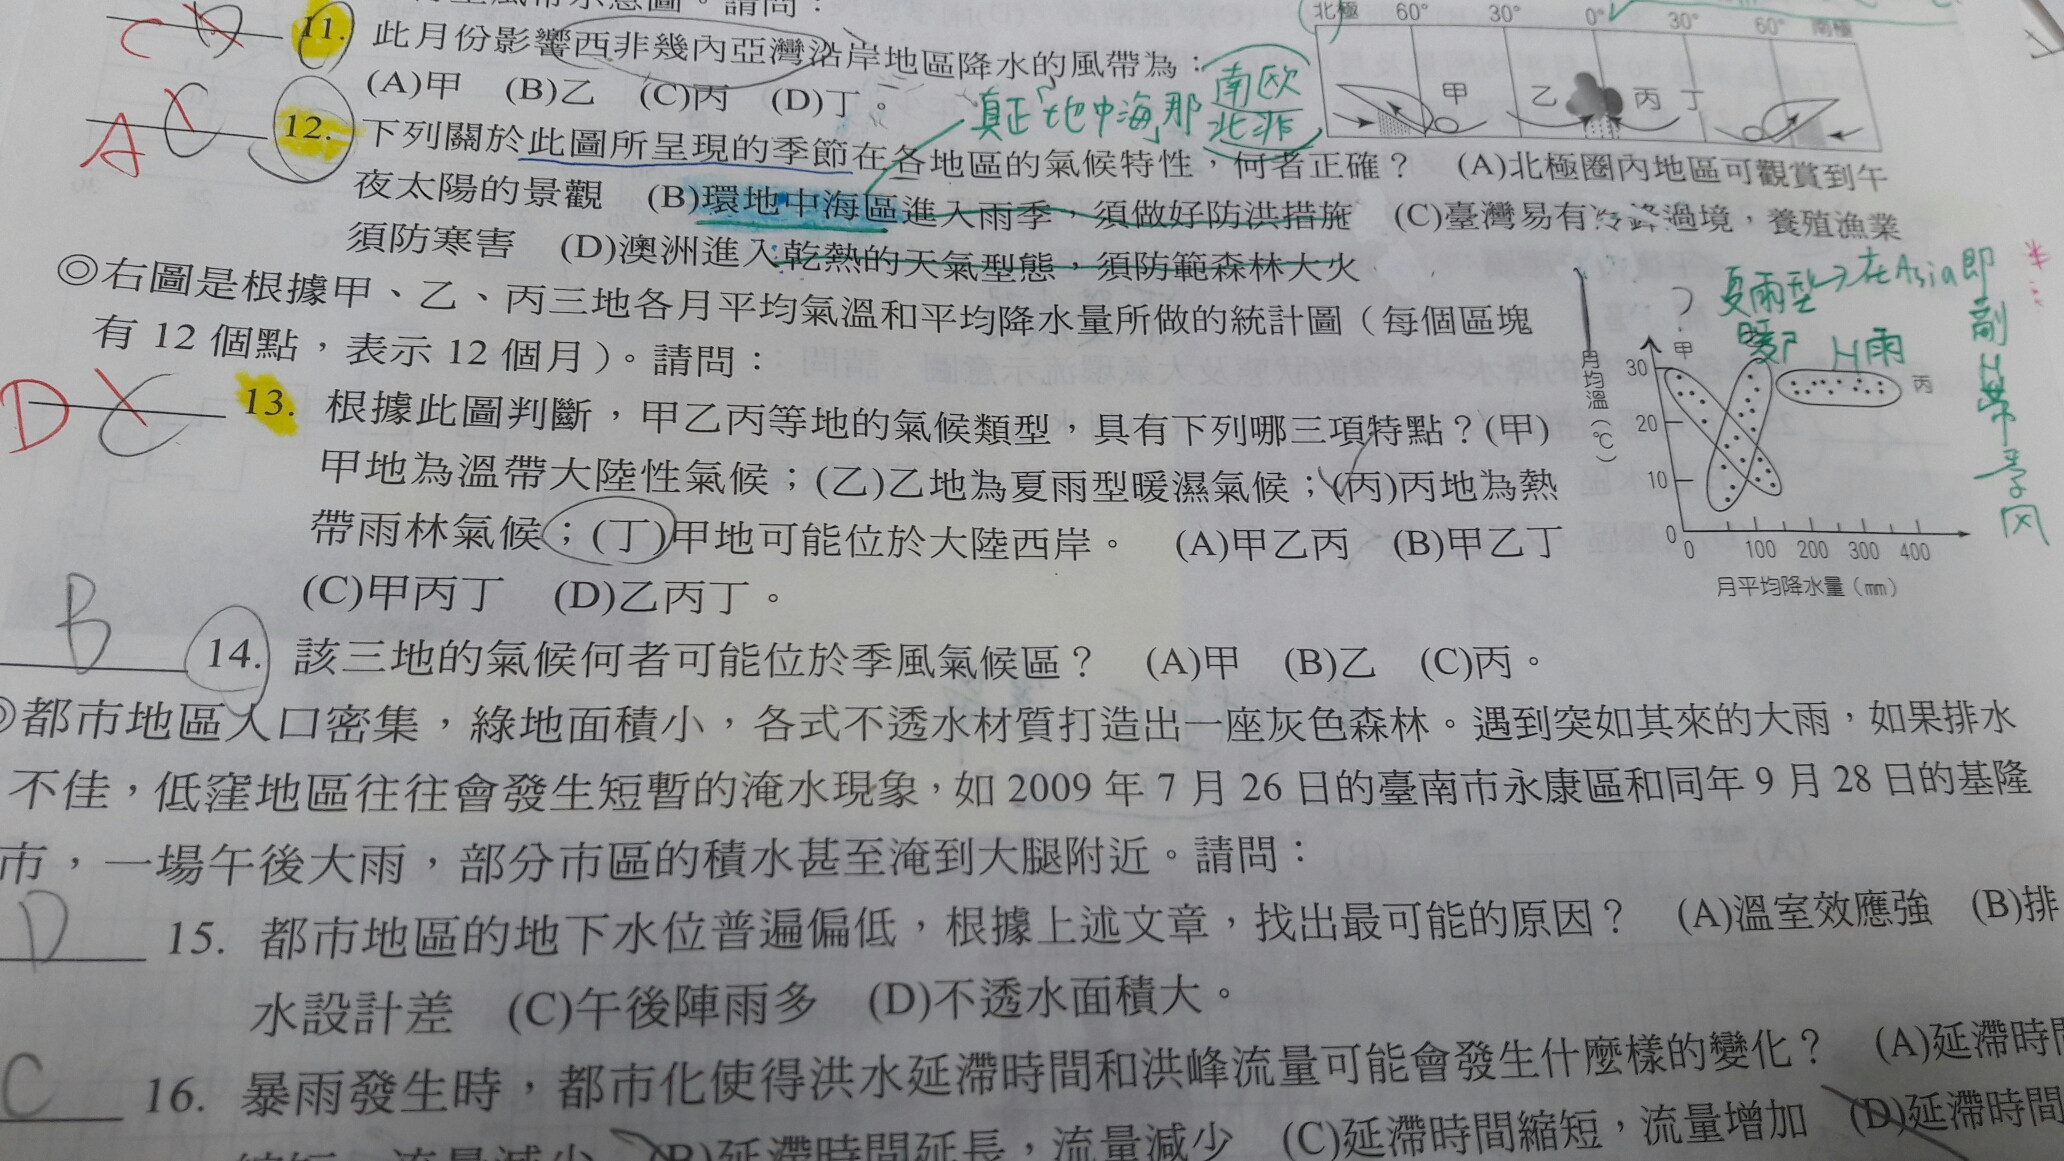 請問：
北極 60° 30° 0° 30° 60° 南極
C
11. 此月份影響西非幾內亞灣沿岸地區降水的風帶為：
(A)甲 (B)乙 (C)丙 (D)丁。
真正「地中海」那 南欧
北非
甲 乙 丙 丁
A C
12. 下列關於此圖所呈現的季節在各地區的氣候特性，何者正確？ (A)北極圈內地區可觀賞到午
夜太陽的景觀 (B)環地中海區進入雨季，須做好防洪措施 (C)臺灣易有冷鋒過境，養殖漁業
須防寒害 (D)澳洲進入乾熱的天氣型態，須防範森林大火
◎右圖是根據甲、乙、丙三地各月平均氣溫和平均降水量所做的統計圖（每個區塊
有 12 個點，表示 12 個月）。請問：
? 夏雨型→在Asia即
副H帶季风
暖 H雨
月均溫（℃）
甲 丙
30
20
10
0
0 100 200 300 400
月平均降水量（mm）
D C
13. 根據此圖判斷，甲乙丙等地的氣候類型，具有下列哪三項特點？(甲)
甲地為溫帶大陸性氣候；(乙)乙地為夏雨型暖濕氣候；(丙)丙地為熱
帶雨林氣候；(丁)甲地可能位於大陸西岸。 (A)甲乙丙 (B)甲乙丁
(C)甲丙丁 (D)乙丙丁。
B
14. 該三地的氣候何者可能位於季風氣候區？ (A)甲 (B)乙 (C)丙。
◎都市地區人口密集，綠地面積小，各式不透水材質打造出一座灰色森林。遇到突如其來的大雨，如果排水
不佳，低窪地區往往會發生短暫的淹水現象，如 2009 年 7 月 26 日的臺南市永康區和同年 9 月 28 日的基隆
市，一場午後大雨，部分市區的積水甚至淹到大腿附近。請問：
D
15. 都市地區的地下水位普遍偏低，根據上述文章，找出最可能的原因？ (A)溫室效應強 (B)排
水設計差 (C)午後陣雨多 (D)不透水面積大。
C
16. 暴雨發生時，都市化使得洪水延滯時間和洪峰流量可能會發生什麼樣的變化？ (A)延滯時間
縮短，流量減少 (B)延滯時間延長，流量減少 (C)延滯時間縮短，流量增加 (D)延滯時間